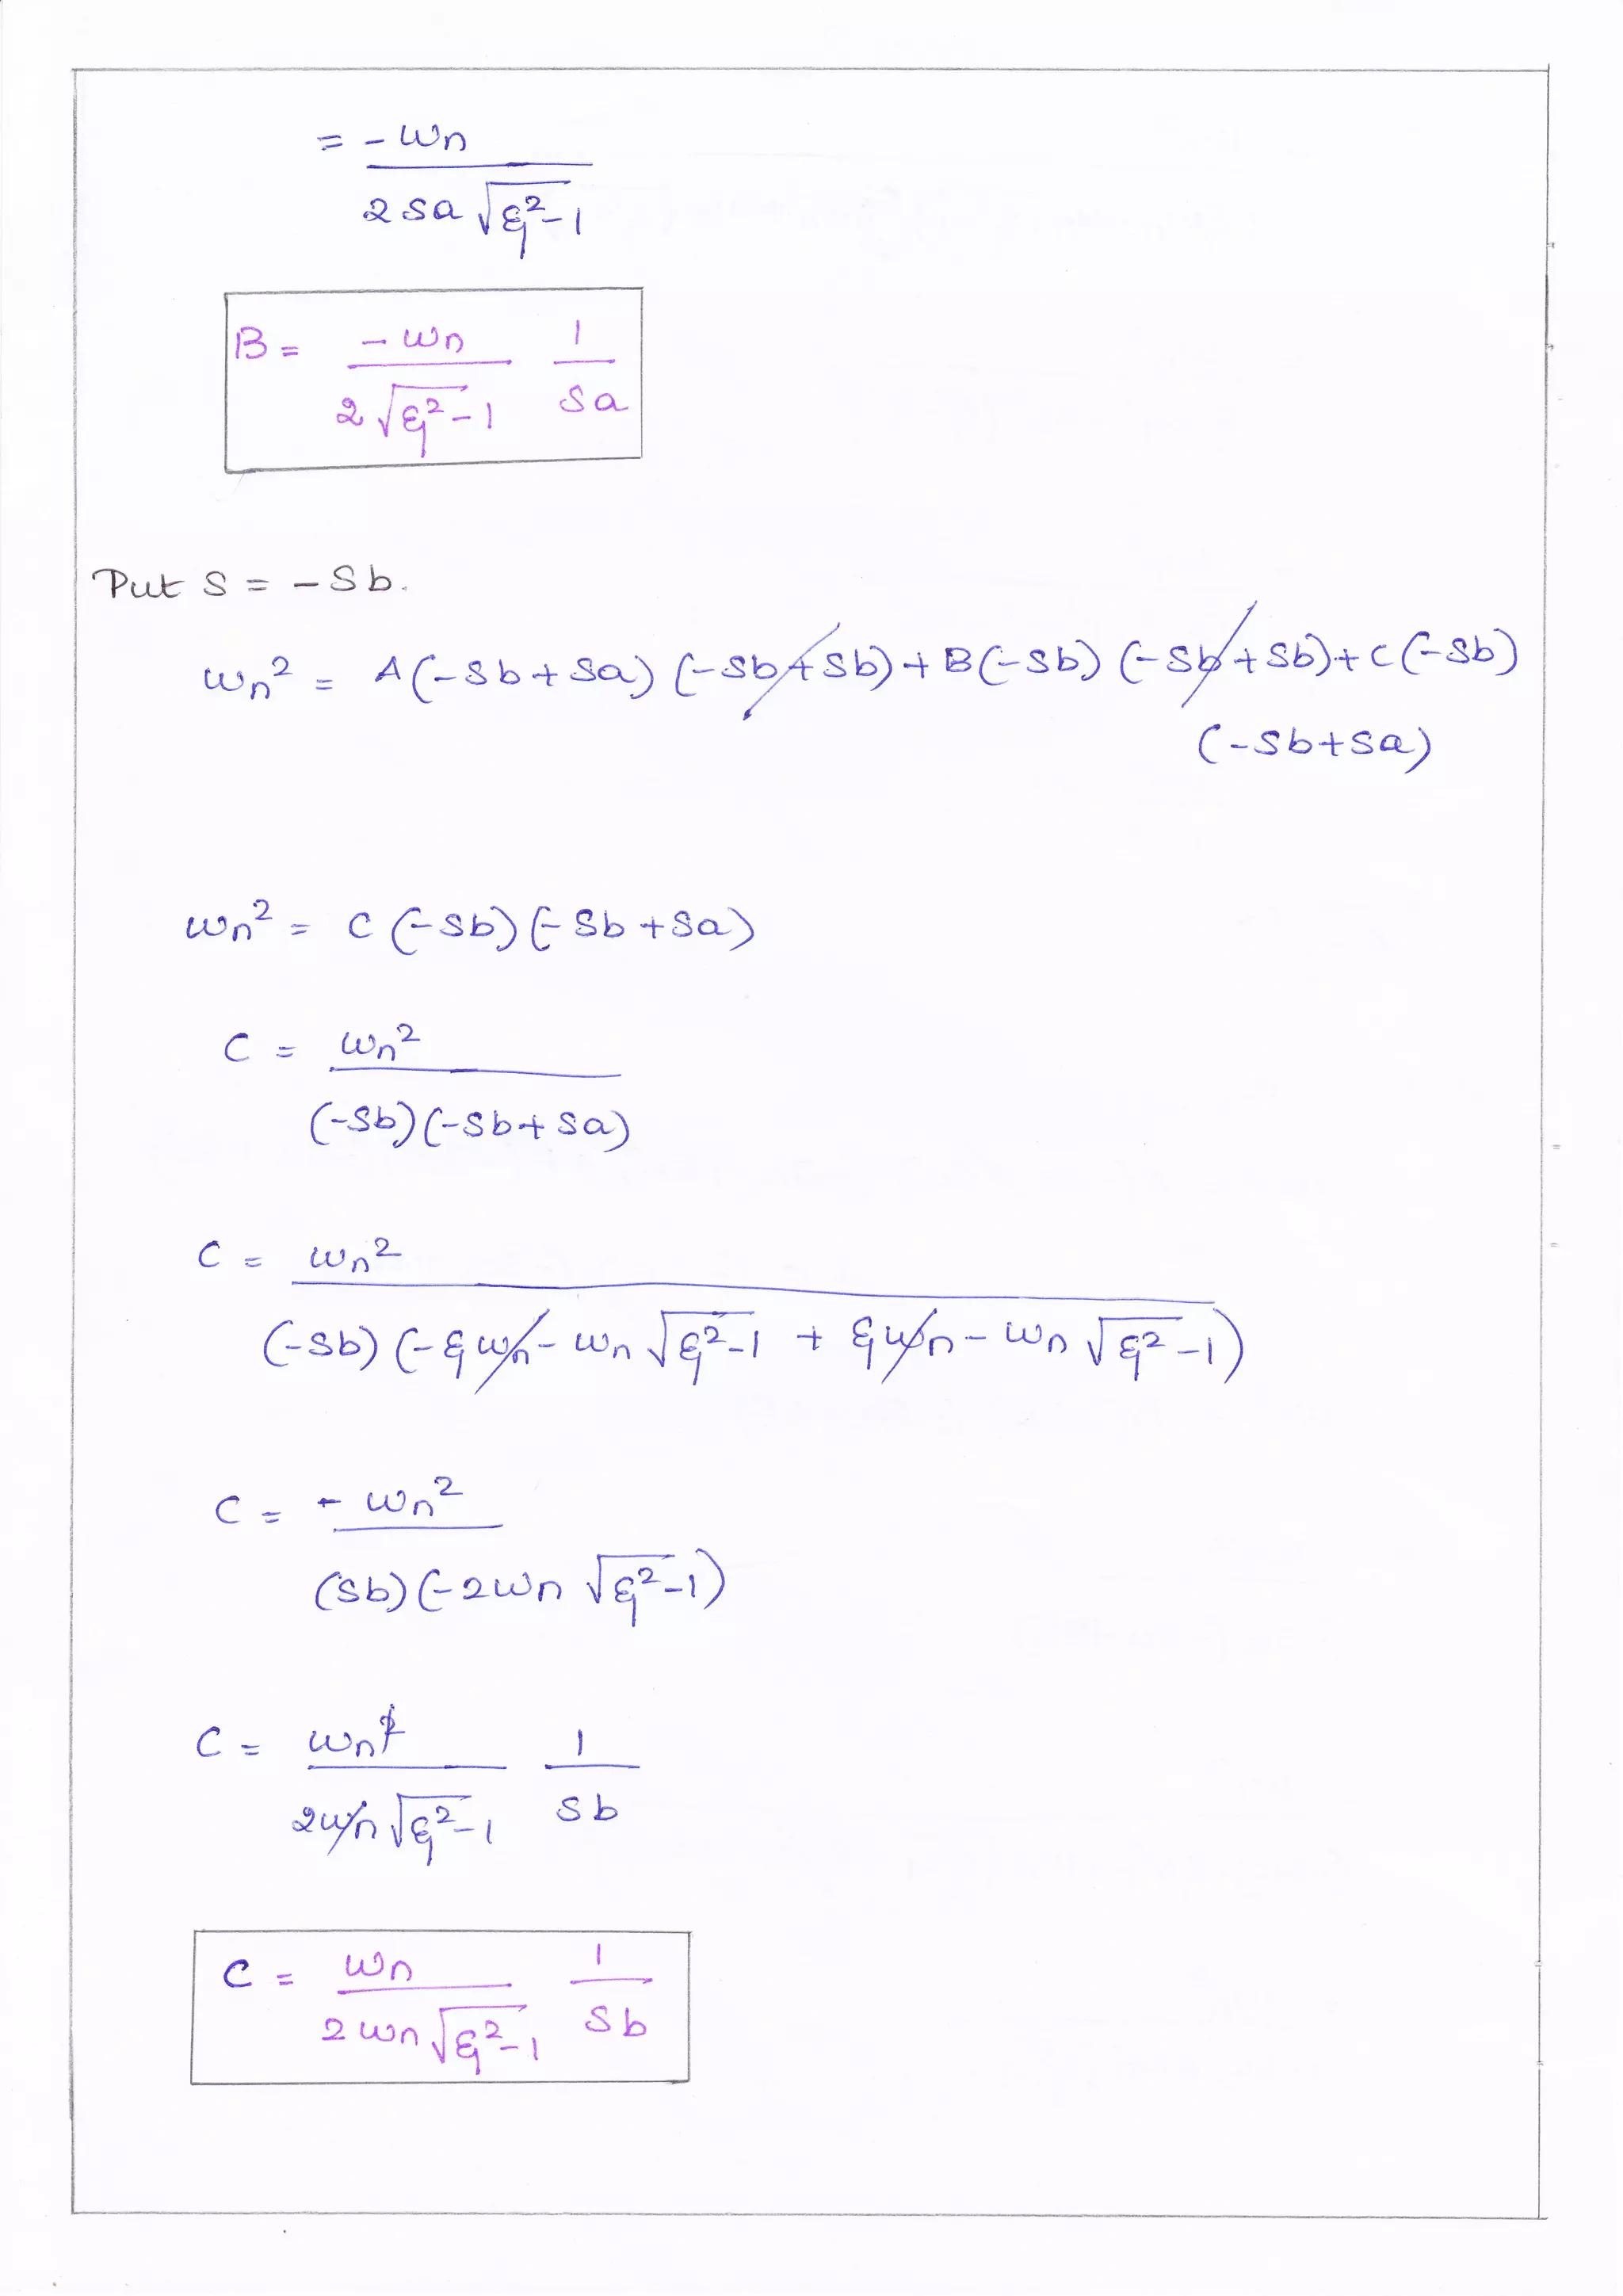 = -ωn / 2Sa √ξ²-1
B = -ωn / 2√ξ²-1 1/Sa
Put S = -Sb.
ωn² = A(-Sb+Sa) (-Sb+Sb) + B(-Sb) (-Sb+Sb) + C(-Sb)
(-Sb+Sa)
ωn² = C (-Sb) (-Sb+Sa)
C = ωn² / (-Sb)(-Sb+Sa)
C = ωn² / (-Sb) (-ξωn - ωn √ξ²-1 + ξωn - ωn √ξ²-1)
C = - ωn² / (Sb)(-2ωn √ξ²-1)
C = ωn² / 2ωn√ξ²-1 1/Sb
C = ωn / 2ωn√ξ²-1 1/Sb